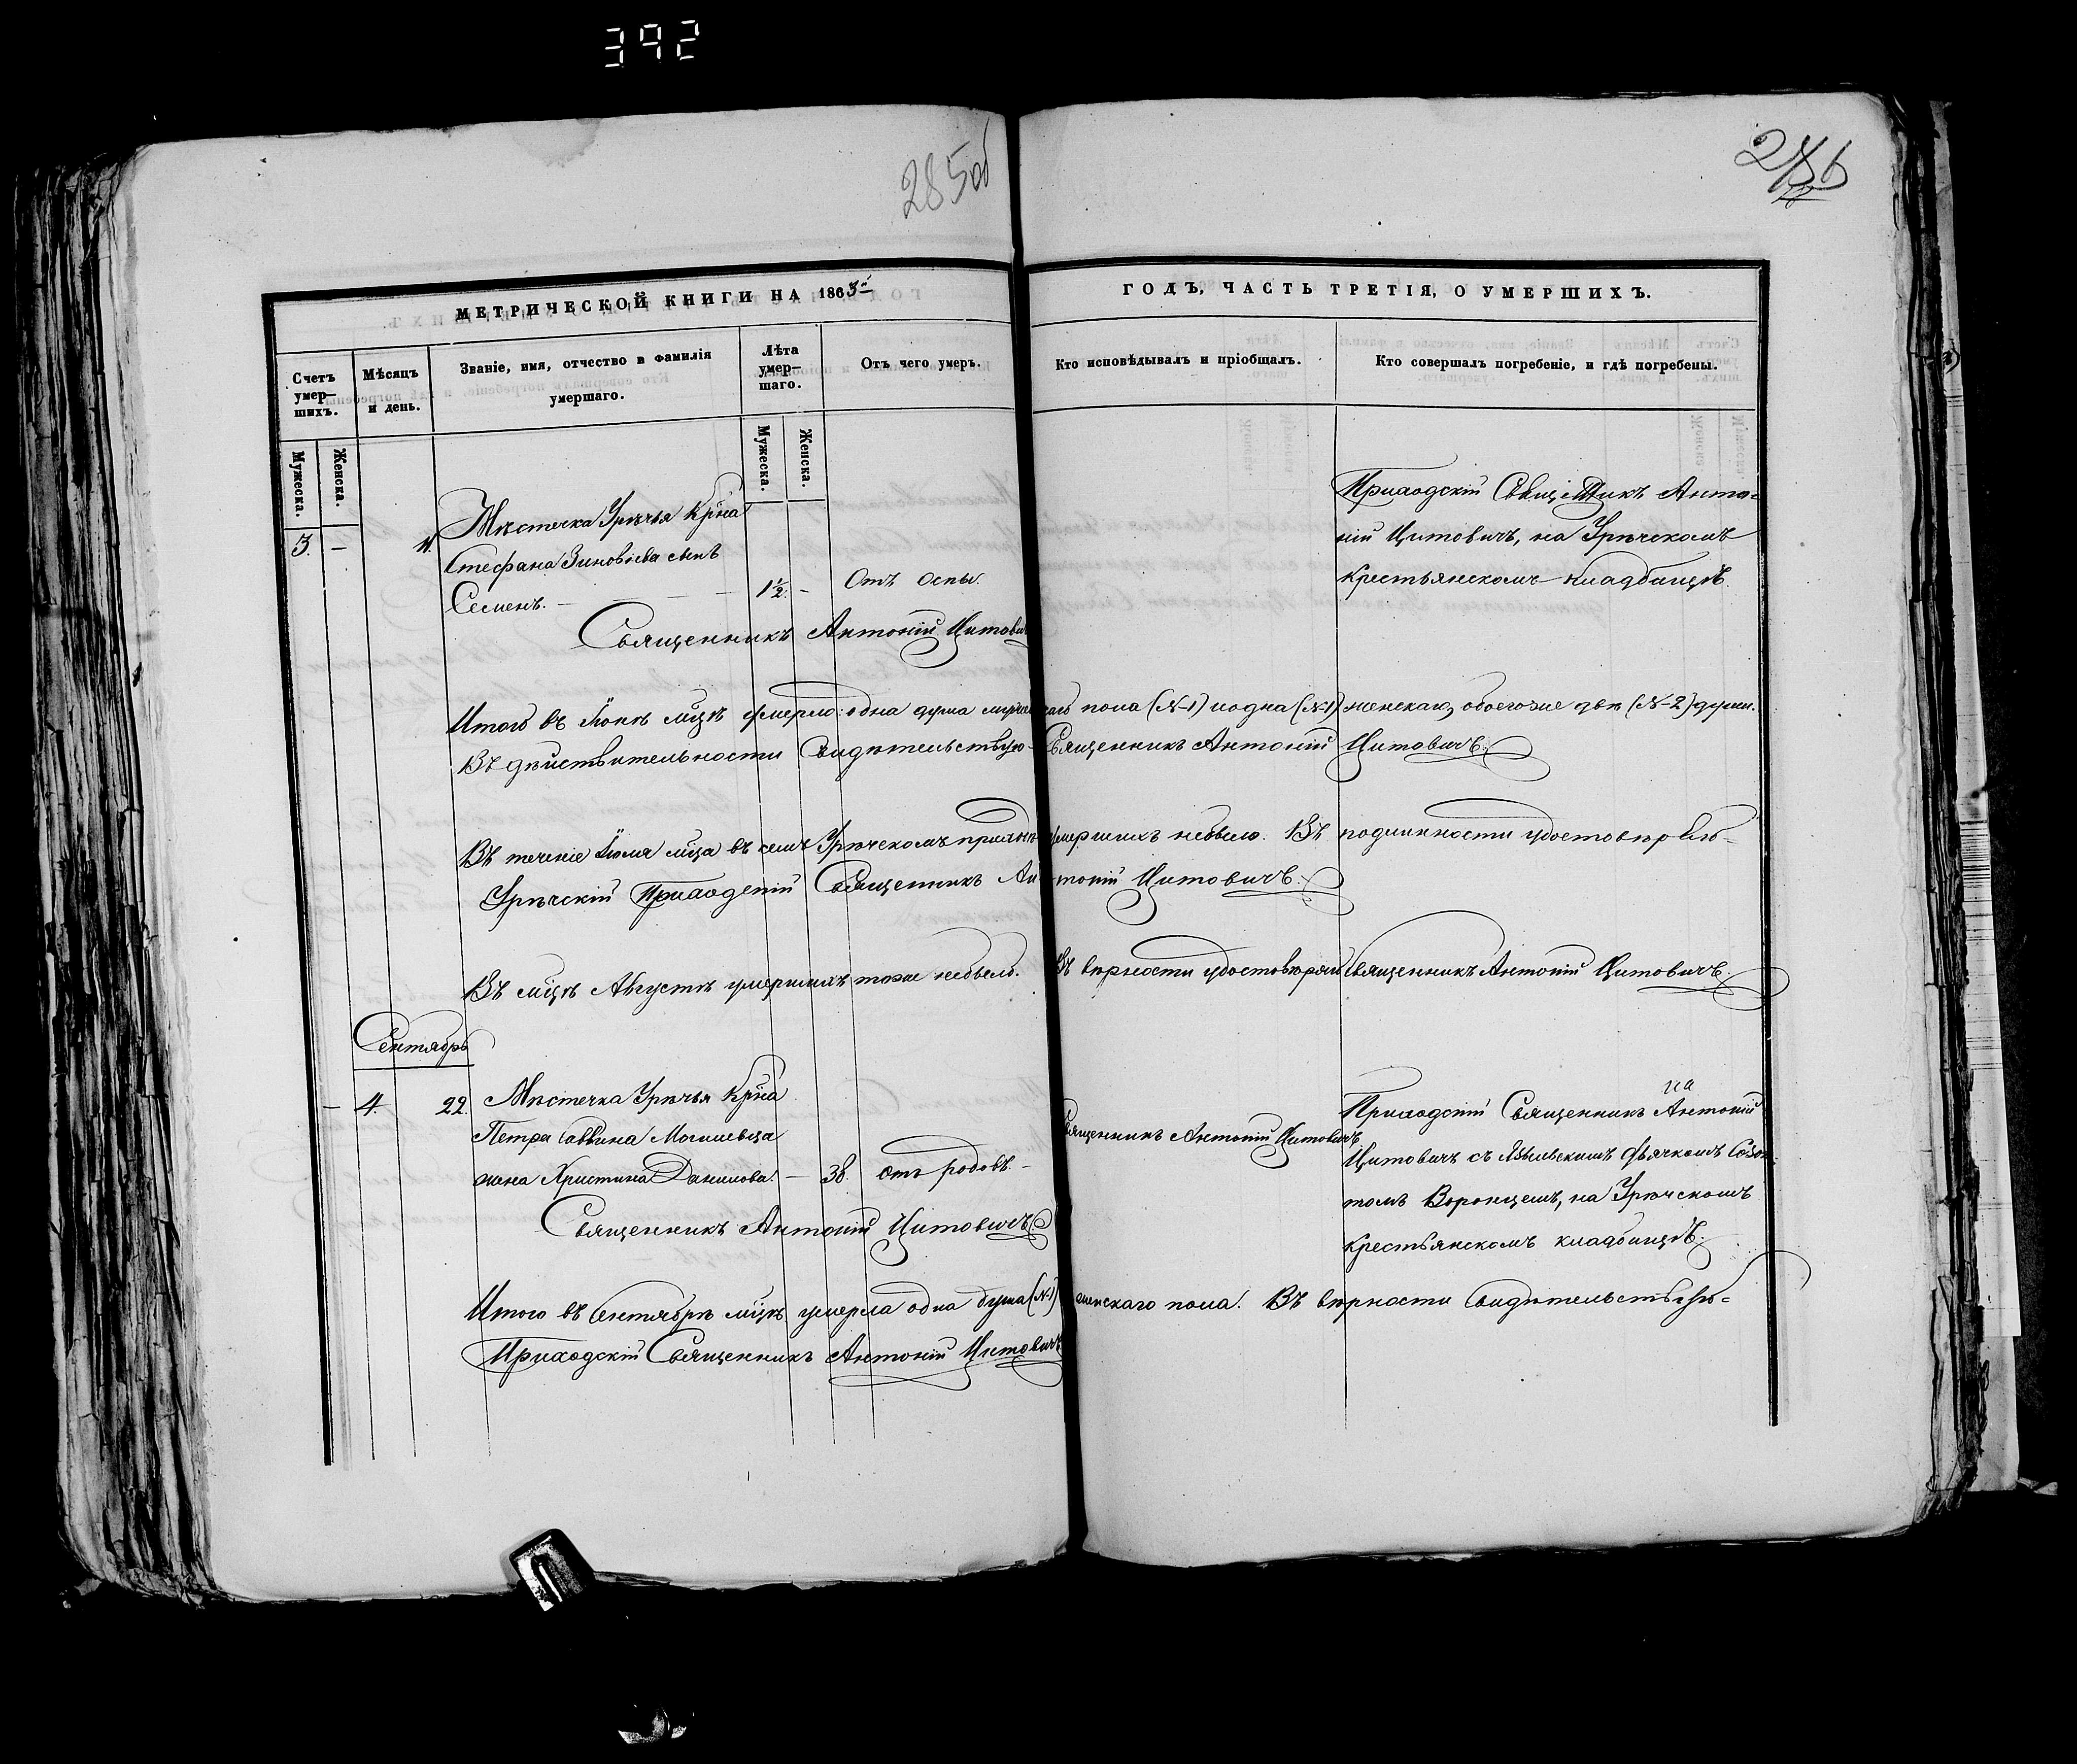 392
285 об
286
МЕТРИЧЕСКОЙ КНИГИ НА 1863й
ГОДЪ, ЧАСТЬ ТРЕТІЯ, О УМЕРШИХЪ.
Счетъ умер-
шихъ.
Мѣсяцъ
и день.
Званіе, имя, отчество и фамилія
умершаго.
Лѣта
умер-
шаго.
Отъ чего умеръ.
Кто исповѣдывалъ и пріобщалъ.
Кто совершалъ погребеніе, и гдѣ погребены.
Мужеска.
Женска.
Мужеска.
Женска.
3. —
Мѣстечка Урѣчья Крна
Стефана Зиновіева сынъ
Семенъ. — 1½. — Отъ оспы.
Приходскій Священникъ Анто-
ній Цитовичъ, на Урѣчскомъ
крестьянскомъ кладбищѣ.
Священникъ Антоній Цитовичъ
Итого въ Іюнѣ мцѣ умерло: одна душа мужескаго пола (№-1) и одна (№-1) женскаго, обоего же двѣ (№-2) души.
Въ дѣйствительности свидѣтельствую Священникъ Антоній Цитовичъ.
Въ теченіе Іюля мца въ семъ Урѣчскомъ приходѣ умершихъ небыло. Въ подлинности удостовѣряю-
Урѣчскій Приходскій Священникъ Антоній Цитовичъ.
Въ мцѣ Августѣ умершихъ тоже небыло. Въ вѣрности удостовѣряю Священникъ Антоній Цитовичъ.
Сентябрь
— 4. 22. Мѣстечка Урѣчья Крна
Петра Саввина Могилевца
жена Христина Данилова. — 38. отъ родовъ. —
Священникъ Антоній Цитовичъ
на
Приходскій Священникъ Антоній
Цитовичъ съ дьячкомъ Созон-
томъ Воронцемъ, на Урѣчскомъ
крестьянскомъ кладбищѣ.
Священникъ Антоній Цитовичъ
Итого въ Сентябрѣ мцѣ умерла одна душа (№-1) женскаго пола. Въ вѣрности свидѣтельствую-
Приходскій Священникъ Антоній Цитовичъ